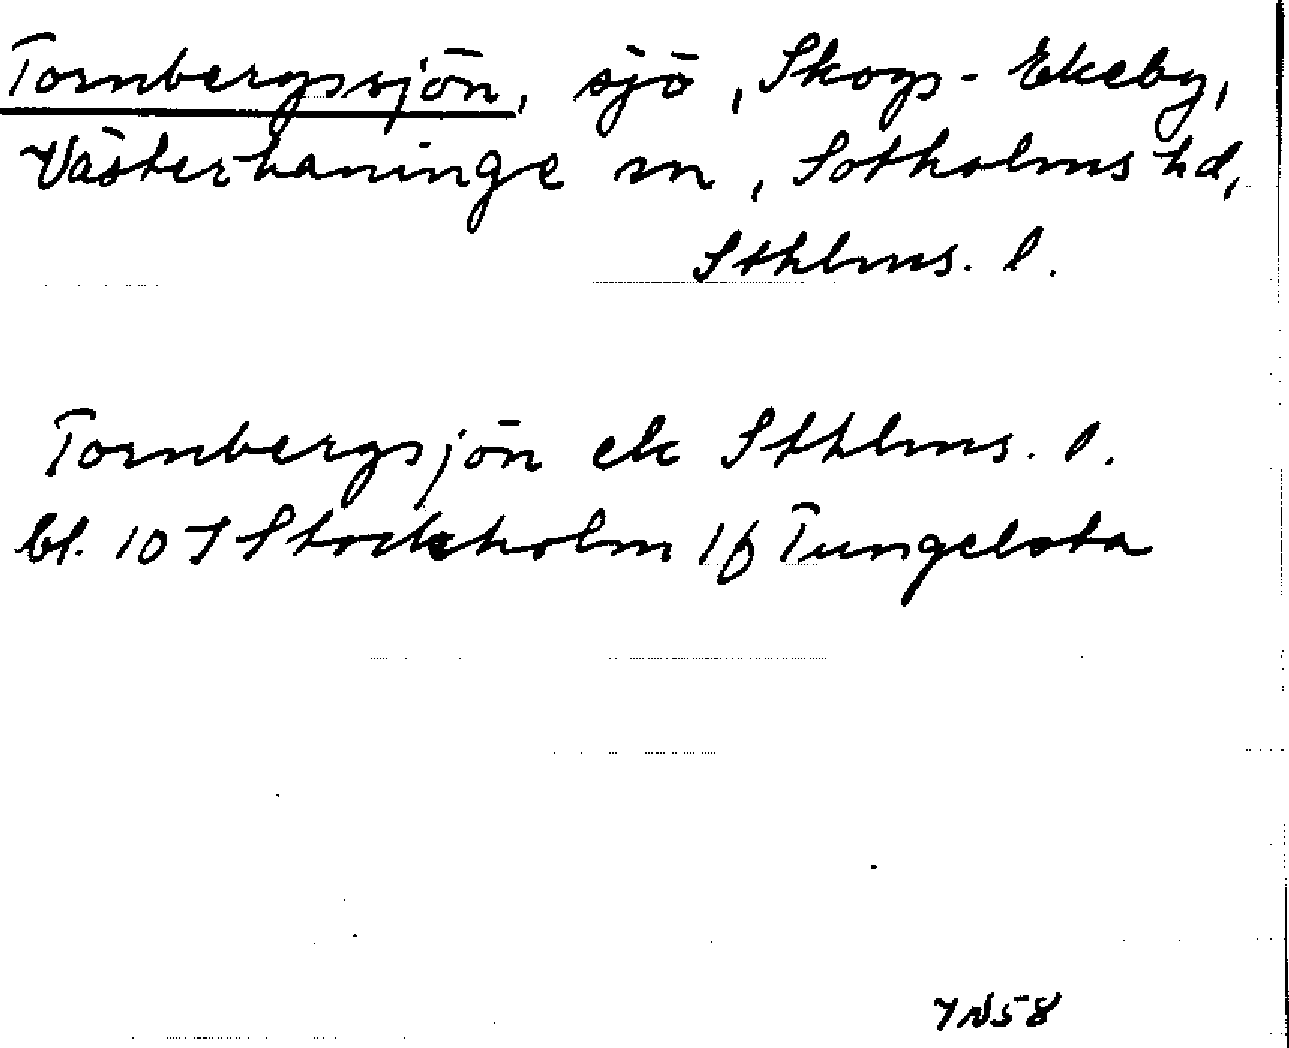 Tornbergssjön, sjö, Skogs-Ekeby,
Västerhaninge sn, Sotholms hd,
Sthlms. l.
Tornbergsjön ek Sthlms. l.
bl. 10 I Stockholm 1f Tungelsta